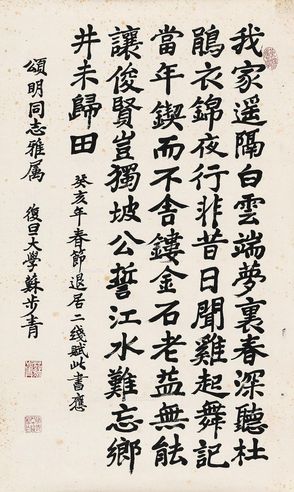 我家遥隔白雲端夢裏春深聽杜
鵑衣錦夜行非昔日聞雞起舞記
當年鍥而不舍鏤金石老益無能
讓俊賢豈獨坡公誓江水難忘鄉
井未歸田
癸亥年春節退居二线賦此書應
頌明同志雅属
復旦大學蘇步青